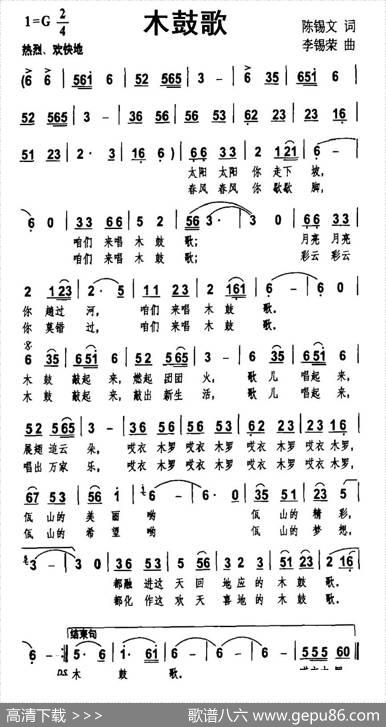 木鼓歌
1=G 2/4
陈锡文 词
热烈、欢快地
李锡荣 曲
(6 6 | 561 6 | 52 565 | 3 - | 6 35 | 651 6 |
52 565 | 3 - | 36 56 | 56 53 | 62 23 | 23 16 |
51 23 | 2· 3 | 16 6 ) | 66 33 | 2 121 | 6 - |
太阳 太阳 你 走下 坡,
春风 春风 你 歇歇 脚,
6 0 | 33 66 | 5 2 | 56 3· | 3 0 | 66 33 |
咱们 来唱 木 鼓 歌; 月亮 月亮
咱们 来唱 木 鼓 歌; 彩云 彩云
2 123 | 2· 5 | 11 23 | 2 161 | 6 - | 6 0 |
你 趟过 河, 咱们 来唱 木 鼓 歌。
你 莫错 过, 咱们 来唱 木 鼓 歌。
6 35 | 651 6 | 52 565 | 3 - | 6 35 | 651 6 |
木 鼓 敲起 来, 燃起 团团 火, 歌 儿 唱起 来,
木 鼓 敲起 来, 敲出 新生 活, 歌 儿 唱起 来,
52 565 | 3 - | 36 56 | 56 53 | 62 23 | 23 16 |
展翅 追云 朵, 哎衣 木罗 哎衣 木罗 哎衣 木罗 哎衣 木罗,
唱出 万家 乐, 哎衣 木罗 哎衣 木罗 哎衣 木罗 哎衣 木罗,
67 53 | 56 1 | 6 - | 6· 0 | 35 51 | 23 5 |
佤山的 美丽 哟 佤山的 精彩,
佤山的 希望 哟 佤山的 梦想,
3 - | 3· 0 | 36 53 | 5 56 | 32 3 | 51 2 | 2 16 |
都融 进这 天回 地应的 木鼓 歌。
都化 作这 欢天 喜地的 木鼓 歌。
结束句
6 - :| 5· 6 | 1· 61 | 6 - | 6 - | 6 - | 55 5 | 55 60 |
D.S. 木 鼓 歌。
高清下载 >>>
歌谱八六 www.gepu86.com